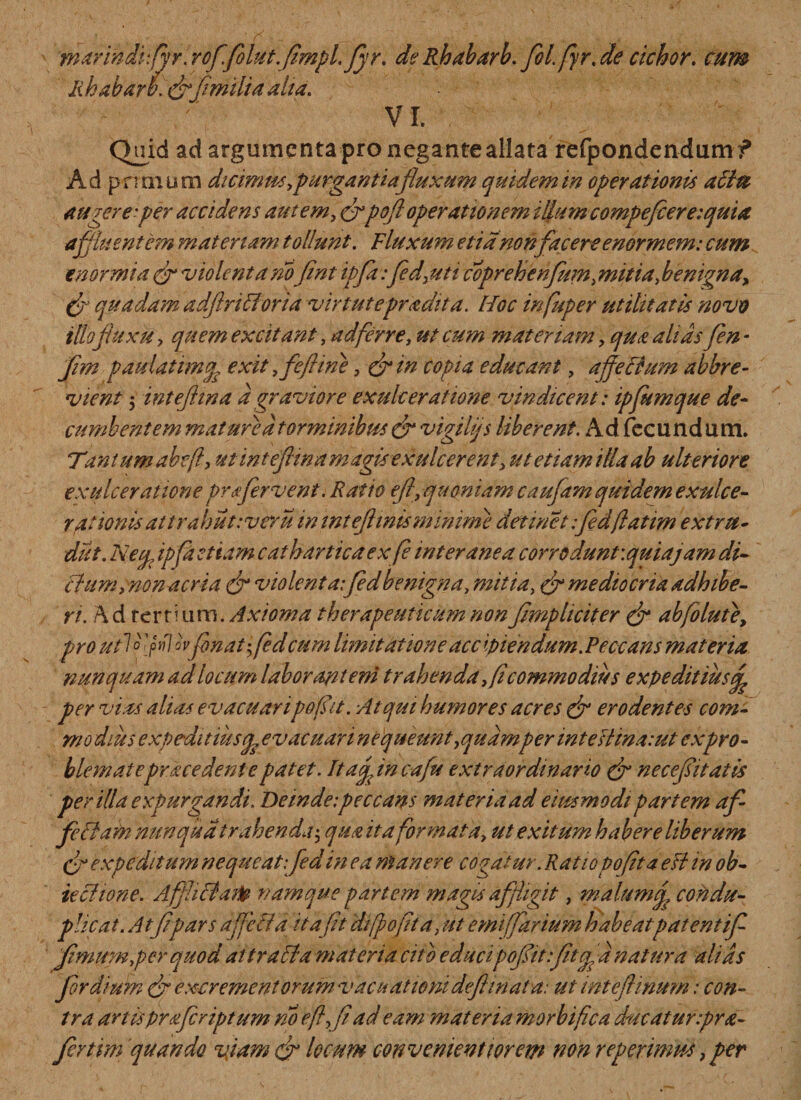 marindi:ſyr. roſ. ſolut. ſimpl. ſyr. de Rhabarb. ſol. ſyr. de cichor. cum
Rhabarb. & ſimilia alia.
VI.
Quid ad argumenta pro negante allata reſpondendum?
Ad primum dicimus, purgantia fluxum quidem in operationis actu
augere: per accidens autem, & poſt operationem illum compeſcere: quia
affluentem materiam tollunt. Fluxum etiā non facere enormem: cum
enormia & violenta nō ſint ipſa: ſed, uti cōprehenſum, mitia, benigna,
& quadam adſtrictoria virtute prædita. Hoc inſuper utilitatis novo
illo fluxu, quem excitant, adferre, ut cum materiam, quæ aliàs ſen-
ſim paulatimq́; exit, feſtinè, & in copia educant, affectum abbre-
vient; inteſtina à graviore exulceratione vindicent: ipſumque de-
cumbentem maturè à torminibus & vigilijs liberent. Ad ſecundum.
Tantum abeſt, ut inteſtina magis exulcerent, ut etiam illa ab ulteriore
exulceratione præſervent. Ratio eſt, quoniam cauſam quidem exulce-
rationis attrahūt: verū in inteſtinis minimè detinēt: ſed ſtatim extru-
dūt. Neq́; ipſa etiam cathartica ex ſe interanea corrodunt: quia jam di-
ctum, non acria & violenta: ſed benigna, mitia, & mediocria adhibe-
ri. Ad tertium. Axioma therapeuticum non ſimpliciter & abſolutè,
prout ſonat; ſed cum limitatione accipiendum. Peccans materia
nunquam ad locum laborantem trahenda, ſi commodiùs expeditiùsq́;
per vias alias evacuari poſſit. At qui humores acres & erodentes com-
modiùs expeditiùsq́; evacuari nequeunt, quàm per inteſtina: ut ex pro-
blemate præcedente patet. Itaq́; in caſu extraordinario & neceſſitatis
per illa expurgandi. Deinde: peccans materia ad eiusmodi partem af-
fectam nunquā trahenda; quæ ita formata, ut exitum habere liberum
& expeditum nequeat: ſed in ea manere cogatur. Ratio poſita eſt in ob-
iectione. Afflictam namque partem magis affligit, malumq́; condu-
plicat. At ſi pars affecta ita ſit diſpoſita, ut emiſſarium habeat patentiſ-
ſimum, per quod attracta materia citò educi poſſit: ſitq́; à natura aliàs
ſordium & excrementorum vacuationi deſtinata: ut inteſtinum: con-
tra artis præſcriptum nō eſt, ſi ad eam materia morbifica ducatur: præ-
ſertim quando viam & locum convenientiorem non reperimus, per